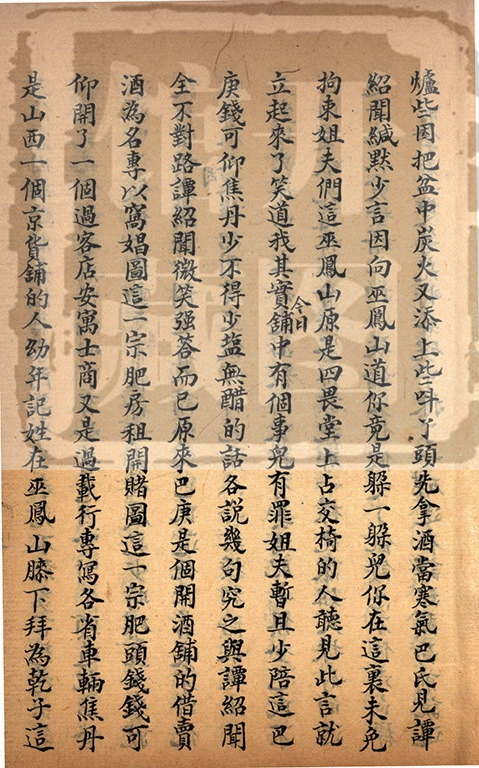 爐些因把盆中炭火又添上些叫丫頭先拿酒當寒氣巴氏見譚
紹聞緘默少言因向巫鳳山道你竟是躲一躲兒你在這裏未免
拘束姐夫們這巫鳳山原是四畏堂上占交椅的人聽見此言就
立起來了笑道我其實今日舖中有個事兒有罪姐夫暫且少陪這巴
庚錢可仰焦丹少不得少塩無醋的話各說幾句究之與譚紹聞
全不對路譚紹聞微笑强答而已原來巴庚是個開酒舖的借賣
酒為名專以窩娼圖這一宗肥房租開賭圖這一宗肥頭錢錢可
仰開了一個過客店安寓士商又是過載行專寫各省車輛焦丹
是山西一個京貨舖的人幼年記姓在巫鳳山膝下拜為乾子這